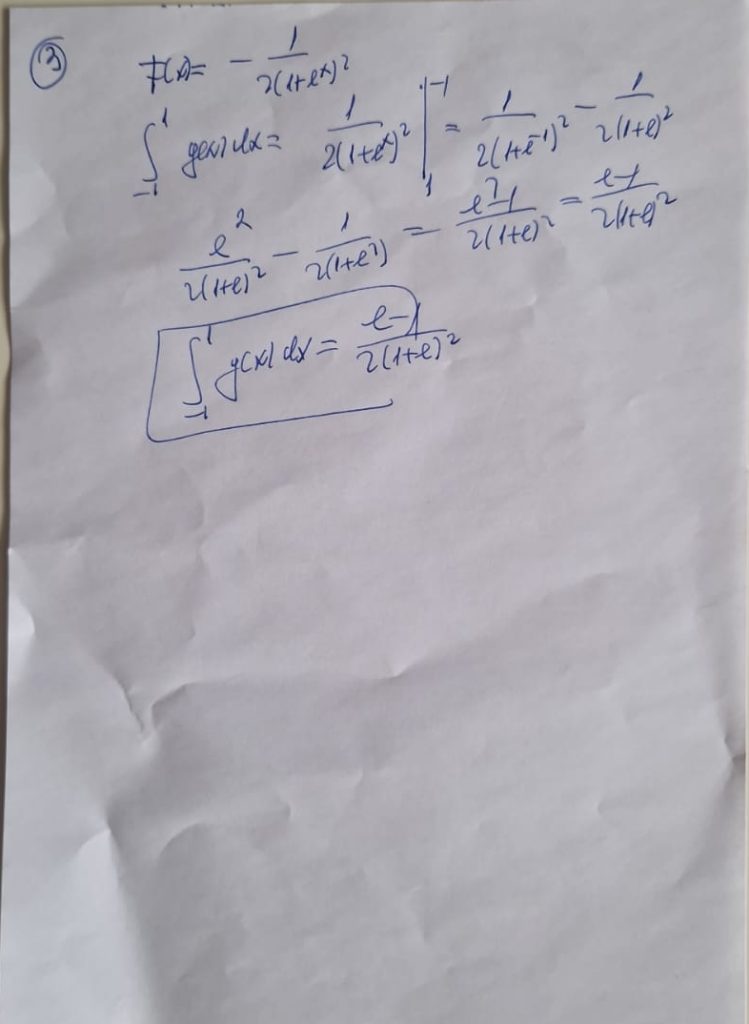 ③ F(x)= - 1/2(1+e^x)^2
∫_{-1}^{1} g(x) dx = 1/2(1+e^x)^2 |_{1}^{-1} = 1/2(1+e^{-1})^2 - 1/2(1+e)^2
e^2/2(1+e)^2 - 1/2(1+e^2) = e^2-1/2(1+e)^2 = e-1/2(1+e)^2
∫_{-1}^{1} g(x) dx = e-1/2(1+e)^2